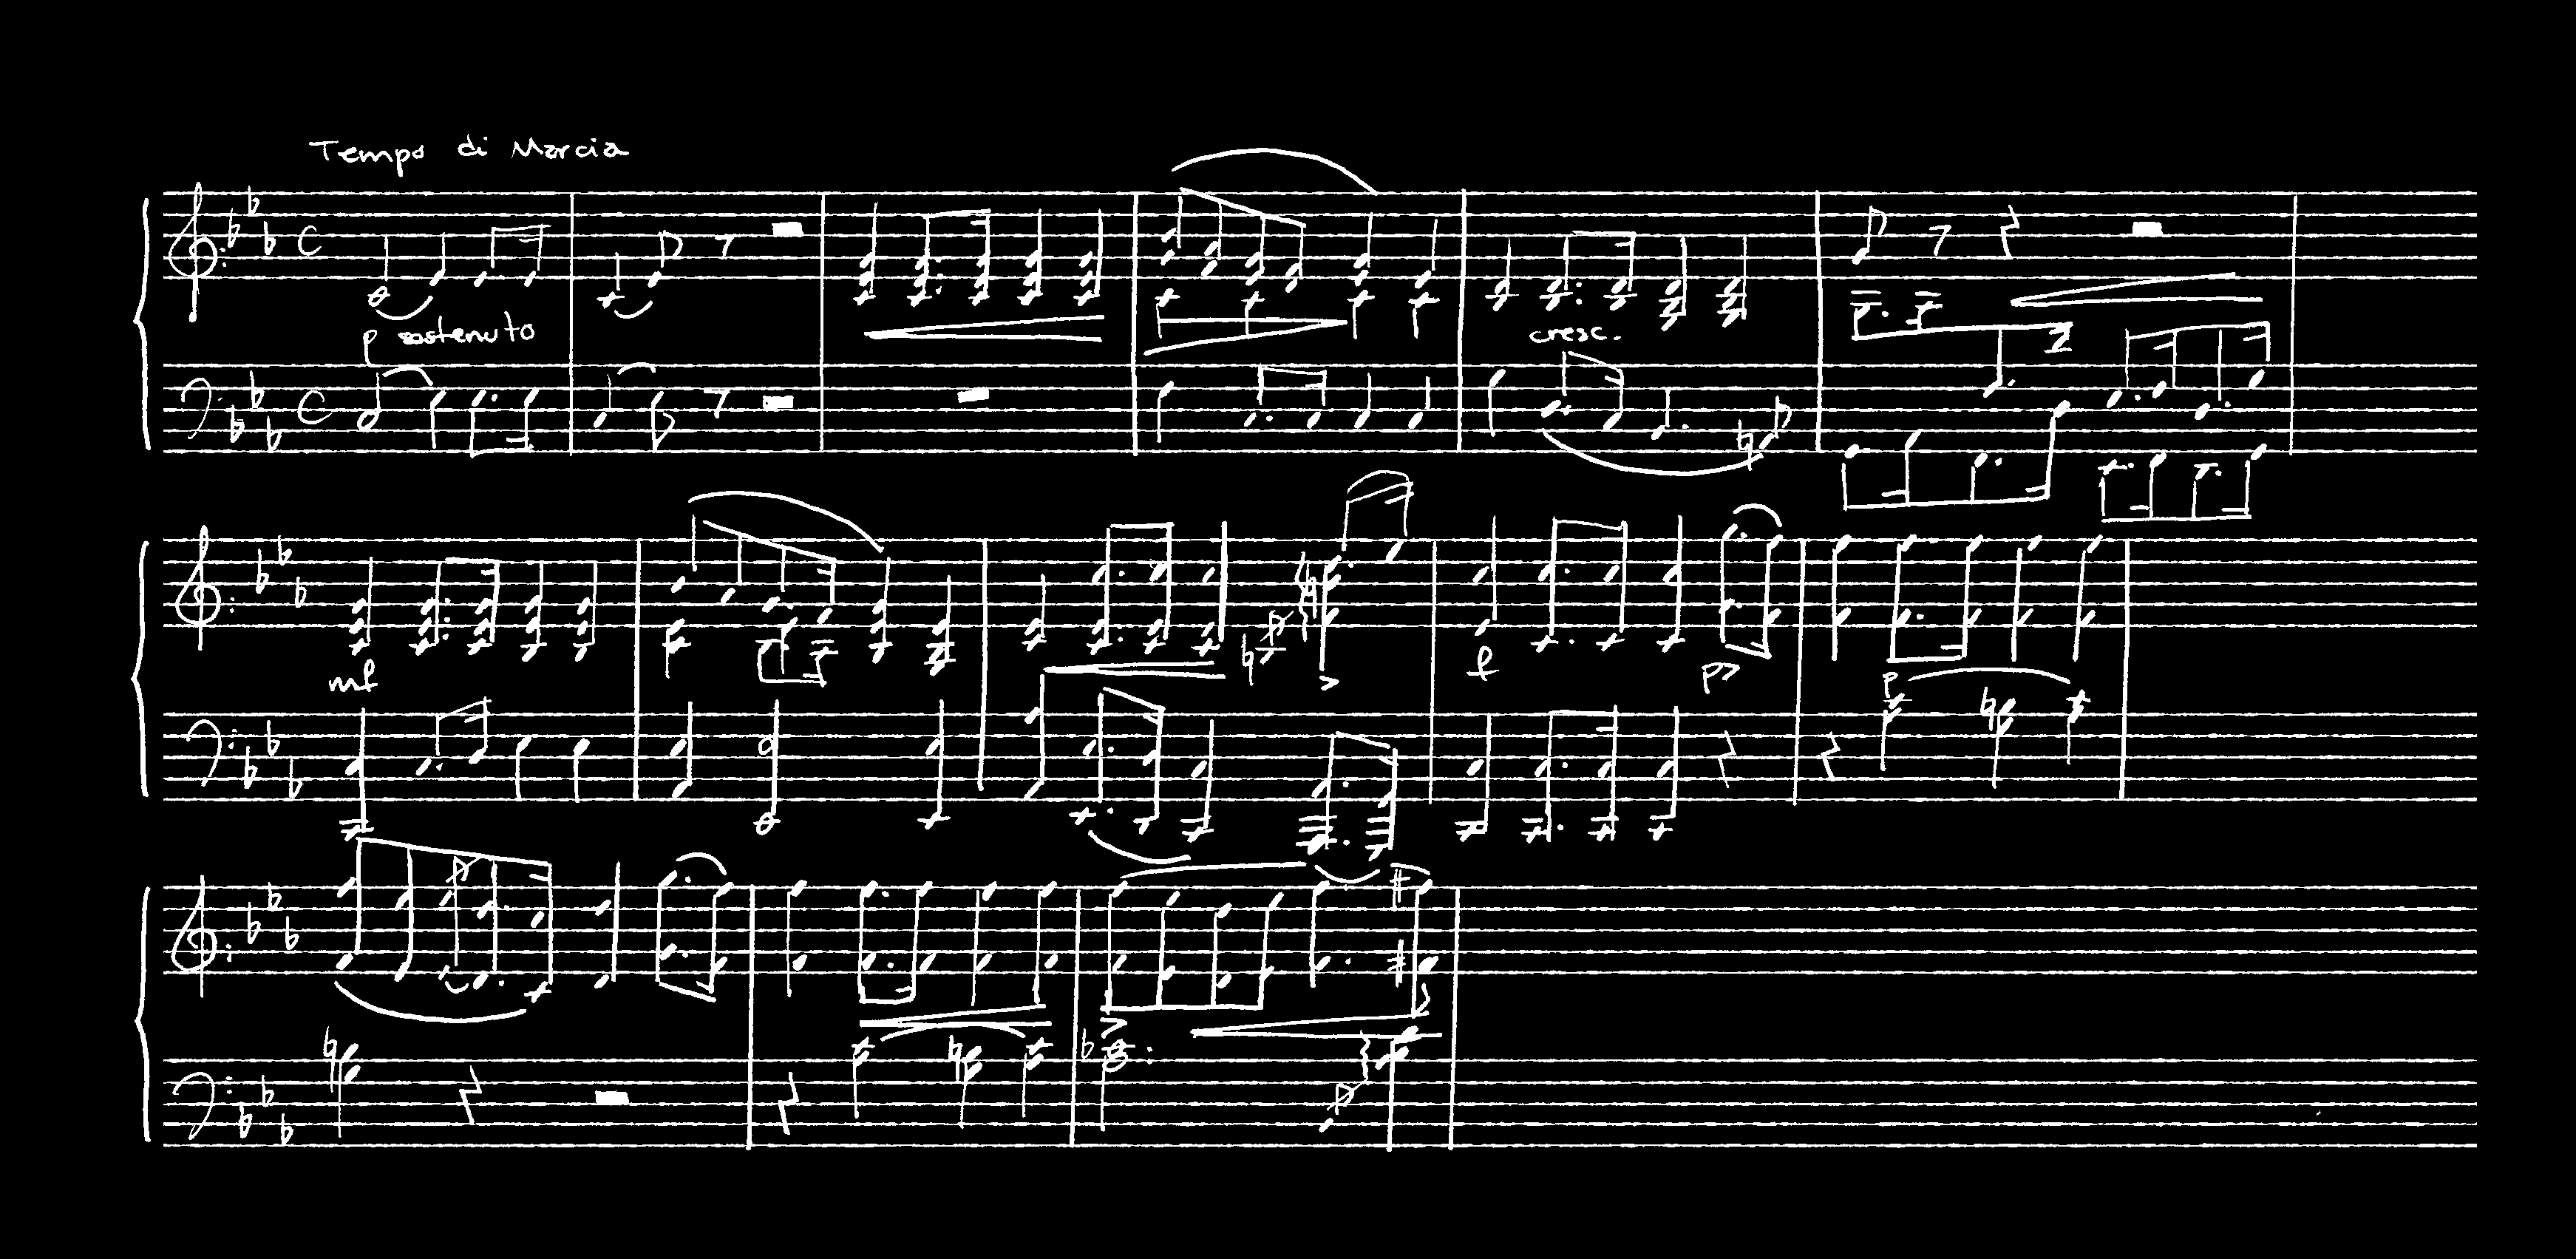 Tempo di Marcia
p sostenuto
cresc.
mf
f
p
p